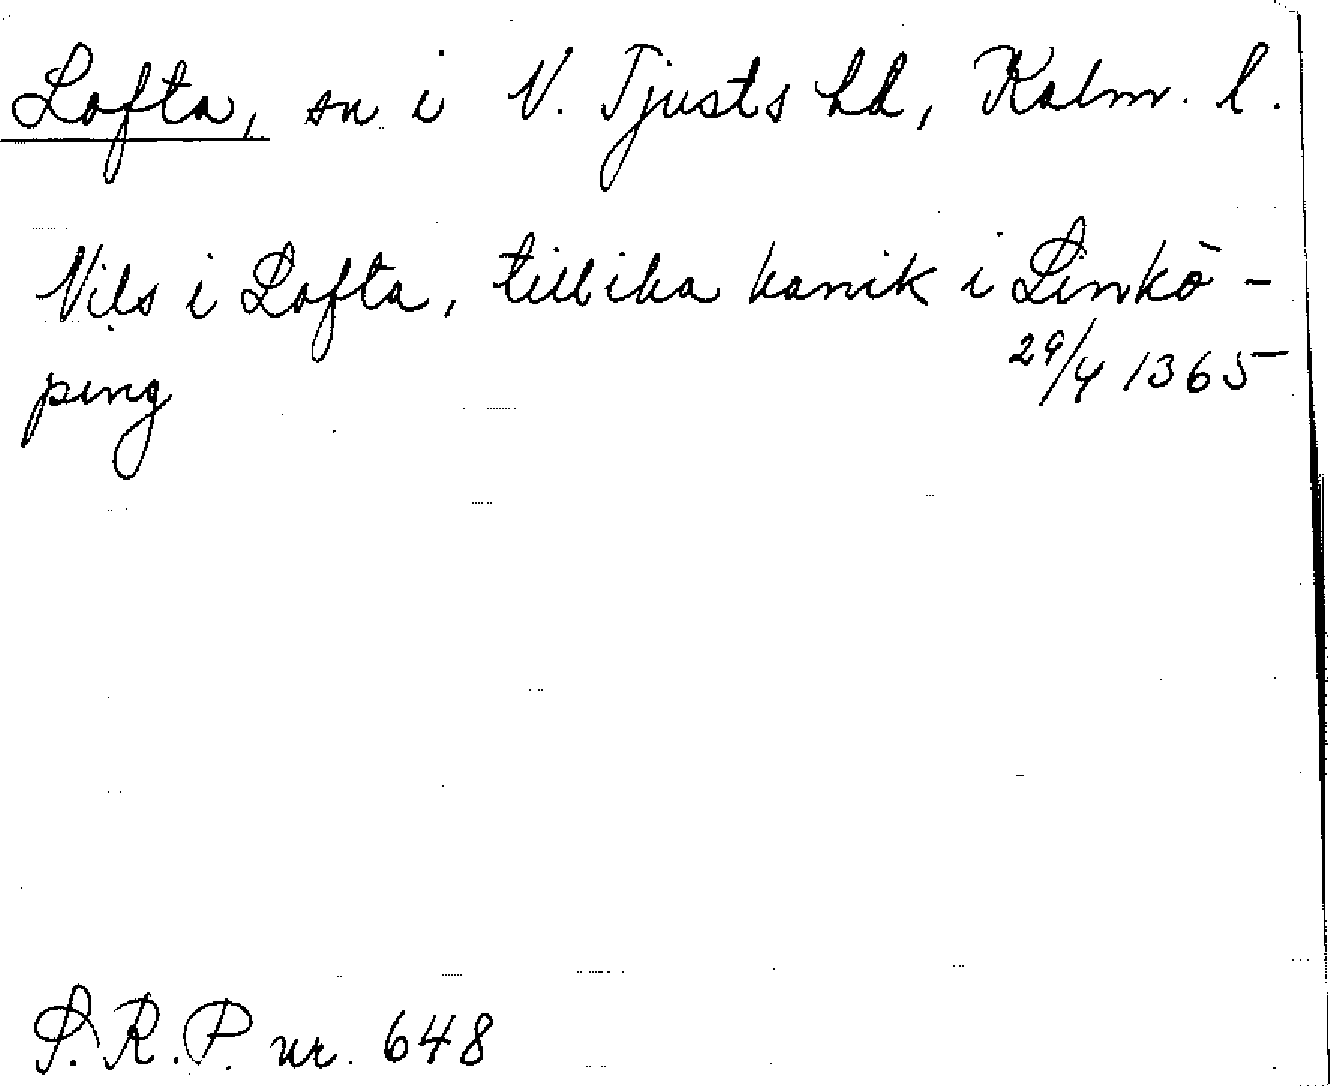 Lofta, sn i N. Tjusts hd, Kalm. l.
Nils i Lofta, tillika kanik i Linkö-
ping 29/4 1365
S.R.P. nr. 648